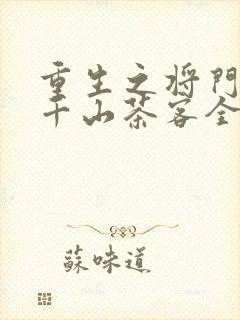 重生之将门
千山茶客全
蘇味道